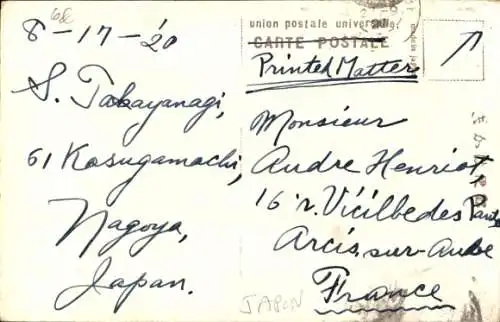 68
8-17-'20
S. Takayanagi,
61 Kasugamachi,
Nagoya,
Japan.
union postale universelle.
CARTE POSTALE
Printed Matter
Monsieur
Andre Henriot
16 r. Vieille des
Arcis-sur-Aube
France
JAPON